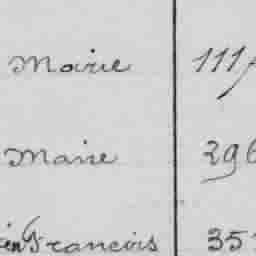 Marie 111
Marie 296
Francois 35